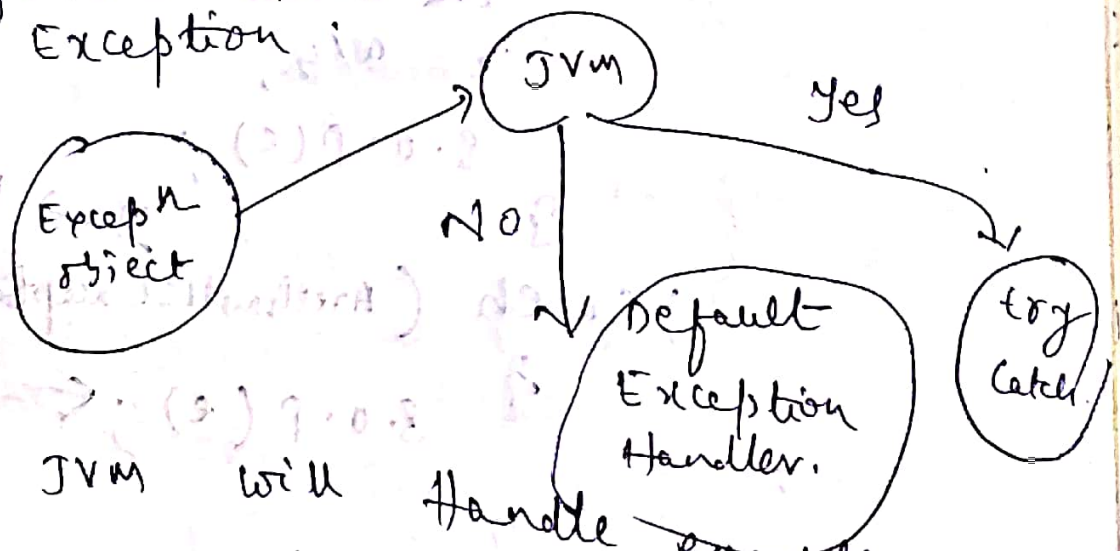 Exception
JVM
Yes
Excepn
object
NO
Default
Exception
Handler.
try
Catch
JVM will Handle